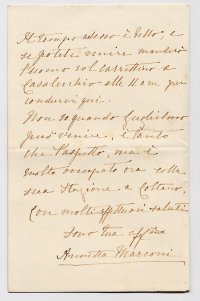 Il tempo adesso è bello, e
se potete venire manderò
l'uomo col carrettino a
Casalecchio alle 11 am per
condurvi qui.
Non so quando Guglielmo
può venire, è tanto
che l'aspetto, ma è
molto occupato ora colla
sua stazione a Coltano,
Con molti affettuosi saluti
sono tua aff.ma
Annetta Marconi